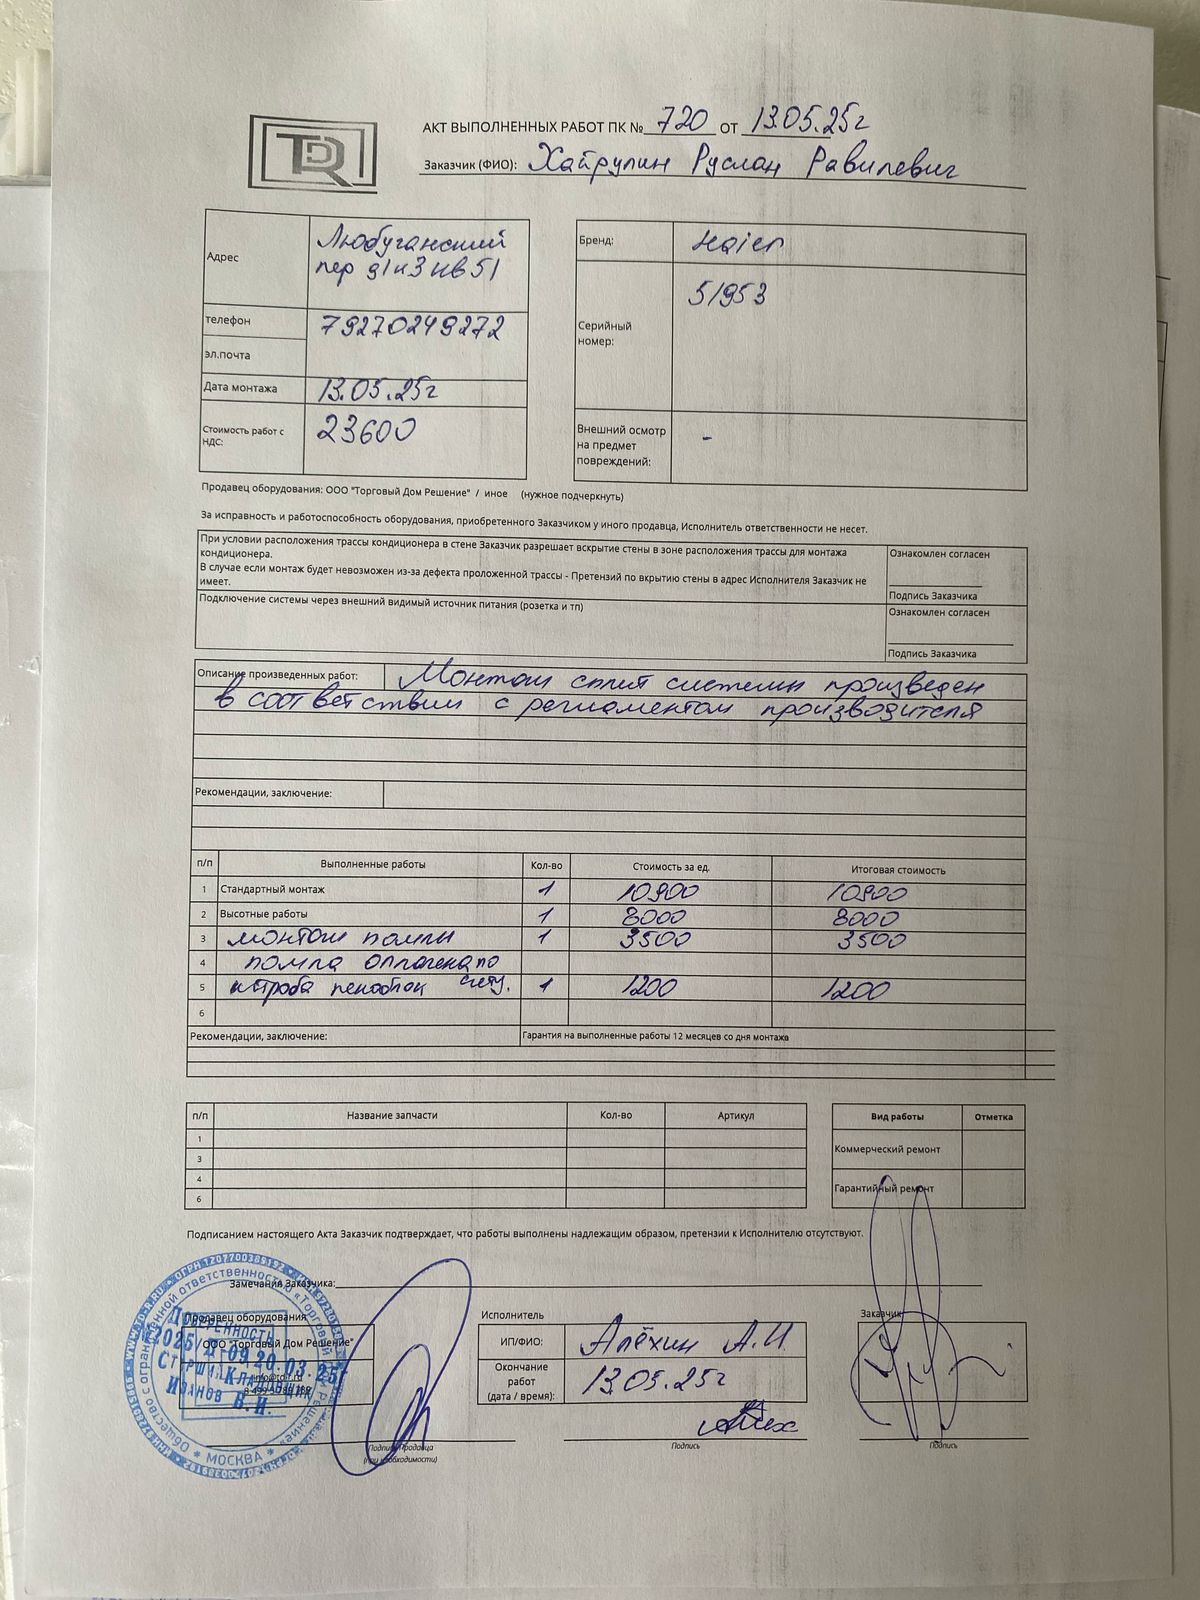 TDR
АКТ ВЫПОЛНЕННЫХ РАБОТ ПК № 720 от 13.05.25г
Заказчик (ФИО): Хайрулин Руслан Равилевич
Адрес
Любучанский
пер д1к3 кв51
телефон 79270249272
эл.почта
Дата монтажа 13.05.25г
Стоимость работ с НДС: 23600
Бренд: Haier
Серийный номер: 51953
Внешний осмотр на предмет повреждений: -
Продавец оборудования: ООО "Торговый Дом Решение" / иное (нужное подчеркнуть)
За исправность и работоспособность оборудования, приобретенного Заказчиком у иного продавца, Исполнитель ответственности не несет.
При условии расположения трассы кондиционера в стене Заказчик разрешает вскрытие стены в зоне расположения трассы для монтажа
кондиционера.
В случае если монтаж будет невозможен из-за дефекта проложенной трассы - Претензий по вкрытию стены в адрес Исполнителя Заказчик не
имеет.
Ознакомлен согласен
Подпись Заказчика
Подключение системы через внешний видимый источник питания (розетка и тп)
Ознакомлен согласен
Подпись Заказчика
Описание произведенных работ: Монтаж сплит системы произведен
в соответствии с регламентом производителя
Рекомендации, заключение:
п/п Выполненные работы Кол-во Стоимость за ед. Итоговая стоимость
1 Стандартный монтаж 1 10900 10900
2 Высотные работы 1 8000 8000
3 монтаж помпы 1 3500 3500
4 помпа оплачена по
5 штроба пеноблок счету. 1 1200 1200
6
Рекомендации, заключение: Гарантия на выполненные работы 12 месяцев со дня монтажа
п/п Название запчасти Кол-во Артикул
1
3
4
6
Вид работы Отметка
Коммерческий ремонт
Гарантийный ремонт
Подписанием настоящего Акта Заказчик подтверждает, что работы выполнены надлежащим образом, претензии к Исполнителю отсутствуют.
Замечания Заказчика:
Продавец оборудования
ООО "Торговый Дом Решение"
Доверенность
20.03.25г
Кладовщик
Иванов В.И.
МОСКВА
Подпись продавца
(при необходимости)
Исполнитель
ИП/ФИО: Алёхин А.И.
Окончание работ (дата / время): 13.05.25г
Подпись
Заказчик
Подпись